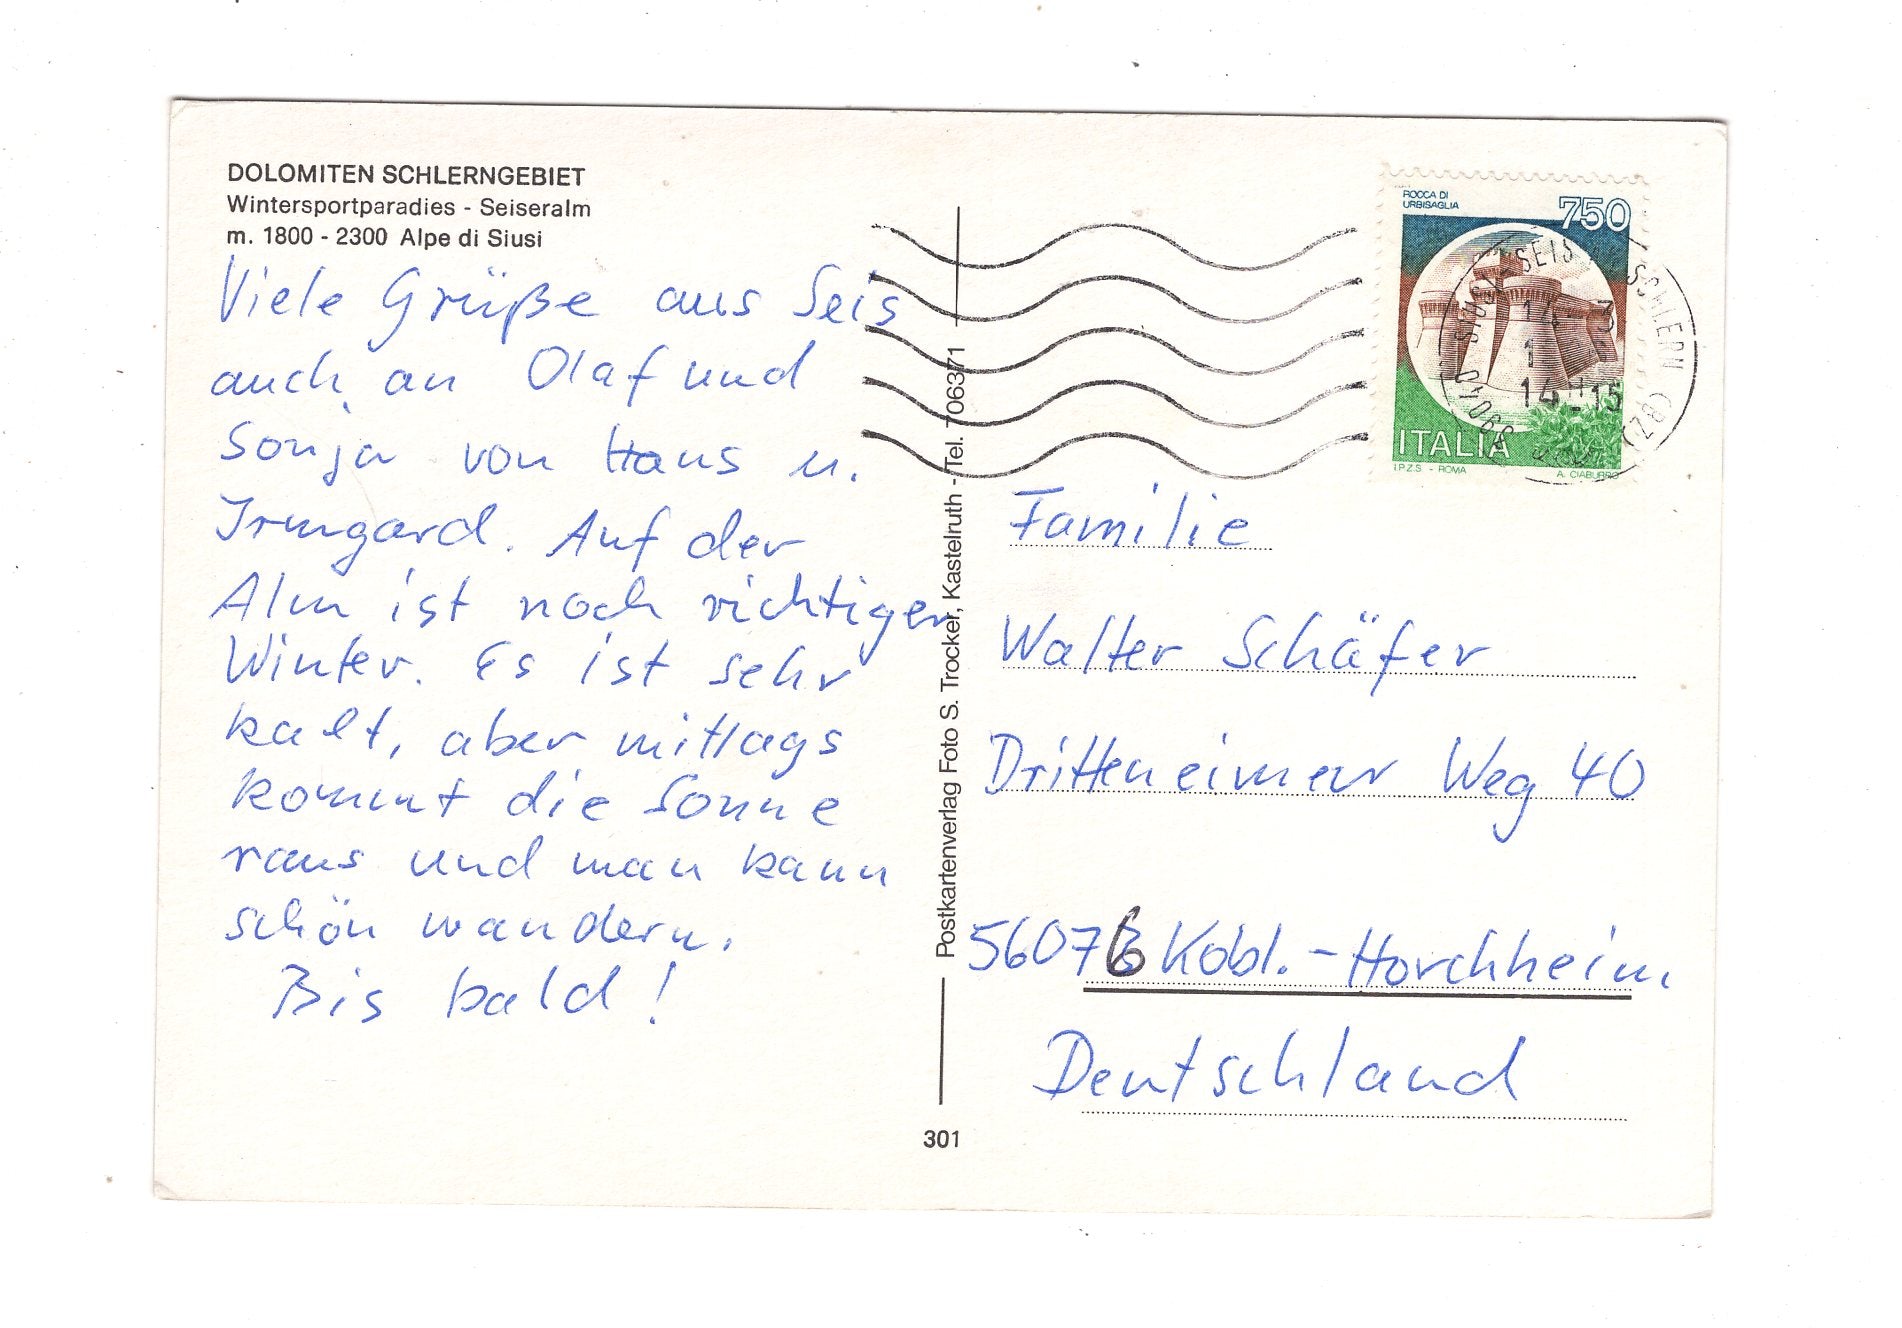 DOLOMITEN SCHLERNGEBIET
Wintersportparadies - Seiseralm
m. 1800 - 2300 Alpe di Siusi
Viele Grüße aus Seis
auch an Olaf und
Sonja von Hans u.
Irmgard. Auf der
Alm ist noch richtiger
Winter. Es ist sehr
kalt, aber mittags
kommt die Sonne
raus und man kann
schön wandern.
Bis bald!
Postkartenverlag Foto S. Trocker, Kastelruth - Tel. 706371
301
ROCCA DI
URBISAGLIA
750
ITALIA
I.P.Z.S. - ROMA
A. CIABURRO
39040 SIUSI - SEIS SCHLERN (BZ)
14 3
14 - 15
Familie
Walter Schäfer
Dritteneimer Weg 40
56076 Kobl. - Horchheim
Deutschland